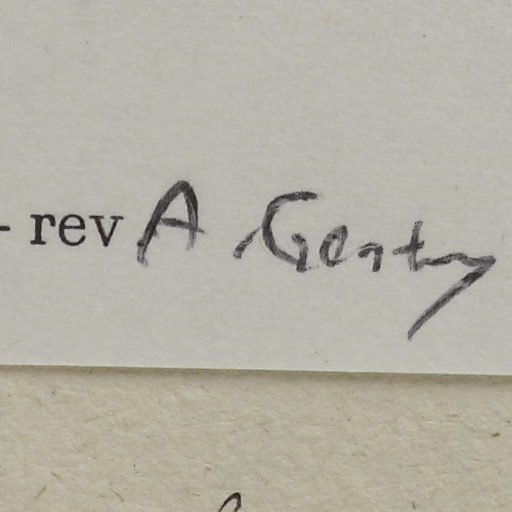 - rev A. Gentry